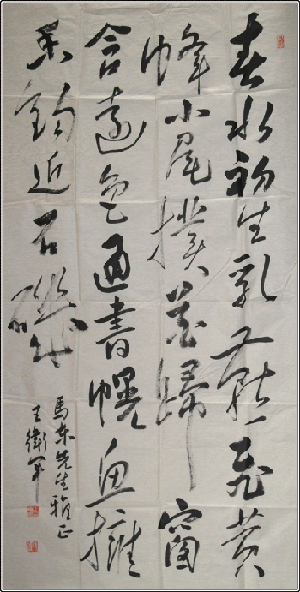 春水初生乳燕飛黄
蜂小尾撲花歸窗
含遠色通書幌魚擁
香鈎近石磯
馬東先生雅正
王衛軍